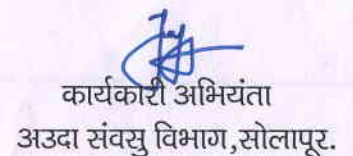 कार्यकारी अभियंता
अउदा संवसु विभाग,सोलापूर.